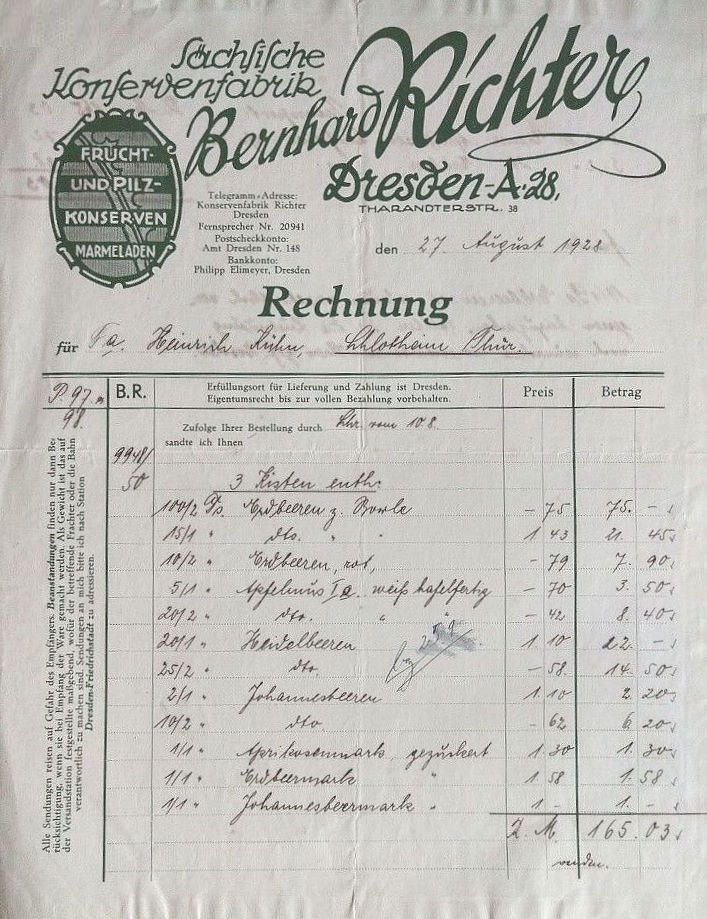 Sächsische
Konservenfabrik
Bernhard Richter
Dresden-A.28,
THARANDTERSTR. 38
FRUCHT-
UND PILZ-
KONSERVEN
MARMELADEN
Telegramm-Adresse:
Konservenfabrik Richter
Dresden
Fernsprecher Nr. 20941
Postscheckkonto:
Amt Dresden Nr. 148
Bankkonto:
Philipp Elimeyer, Dresden
den 27. August 1928
Rechnung
für Fa. Heinrich Kühn, Schlotheim Thür.
P. 97 B.R. Erfüllungsort für Lieferung und Zahlung ist Dresden. Preis Betrag
98. Eigentumsrecht bis zur vollen Bezahlung vorbehalten.
Zufolge Ihrer Bestellung durch Schr. vom 10 8.
sandte ich Ihnen
9948/
50 3 Kisten enth:
100/2 Ds Erdbeeren z. Bowle - 75 75. -
15/1 " dto. " " 1 43 21. 45
10/2 " Erdbeeren, rot, - 79 7. 90
5/1 " Apfelmus Ia. weiß tafelfertig - 70 3. 50
20/2 " dto. " " - 42 8. 40
20/1 " Heidelbeeren 1. 10 22. -
25/2 " dto. - 58. 14. 50
2/1 " Johannesbeeren 1. 10 2. 20
10/2 " dto - 62 6. 20
1/1 " Aprikosenmark, gezuckert 1. 30 1. 30
1/1 " Erdbeermark " 1. 58 1. 58
1/1 " Johannesbeermark " 1 - 1. -
R. M. 165. 03
wenden.
Alle Sendungen reisen auf Gefahr des Empfängers. Beanstandungen finden nur dann Be-
rücksichtigung, wenn sie bei Empfang der Ware gemacht werden. Als Gewicht ist das auf
der Versandstation festgestellte maßgebend, wofür der betreffende Frachter oder die Bahn
verantwortlich zu machen sind. Sendungen an mich bitte ich nach Station
Dresden-Friedrichstadt zu adressieren.